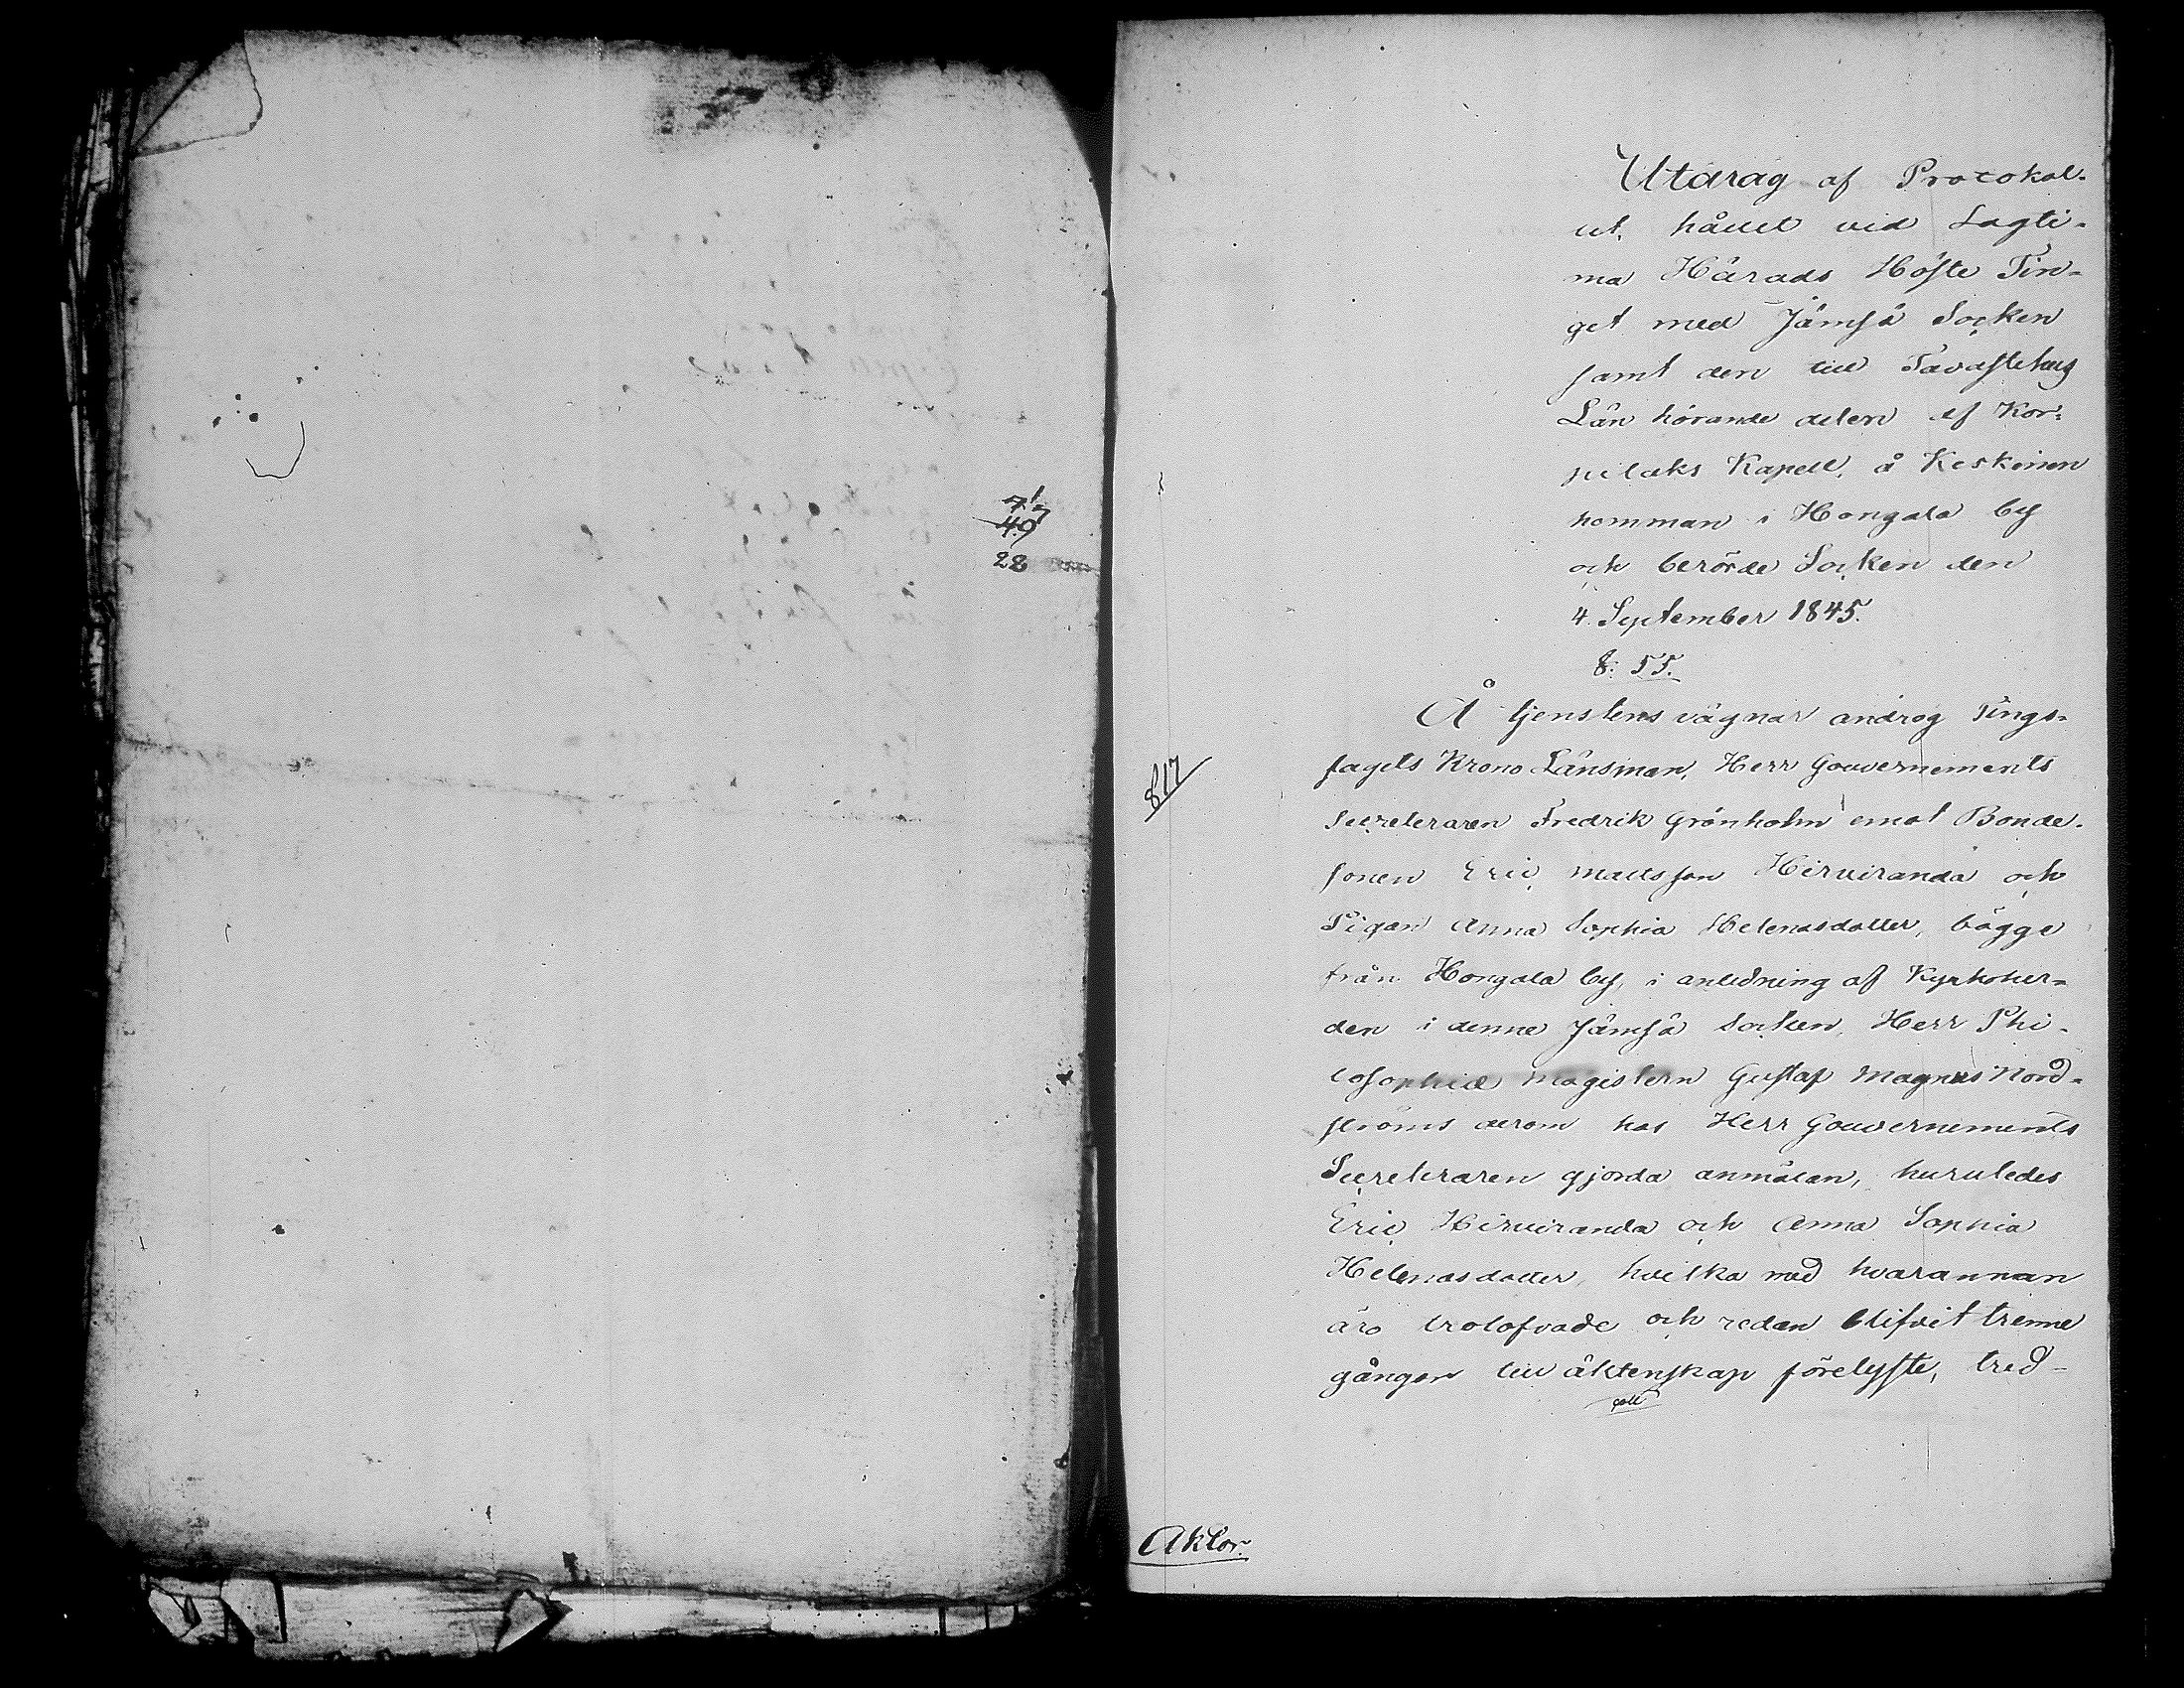 71
49
28
Utdrag af Protokol-
let, hållet vid Lagti-
ma Härads Höste Tin-
get med Jämsä Socken
samt den till Tavastehus
Län hörande delen af Kor-
pilaks Kapell, å Keskinen
hemman i Hongala by
och berörde Socken den
4. September 1845.
§: 55.
Å tjenstens vägnar androg Tings-
lagets Krono Länsman, Herr Gouvernements
Secreteraren Fredrik Grönholm emot Bonde-
sonen Eric Mattsson Hirviranda och
Pigan Anna Sophia Helenasdotter, bägge
från Hongala by, i anledning af Kyrkoher-
den i denne Jämsä Socken, Herr Phi-
losophiæ Magistern Gustaf Magnus Nord-
ströms derom hos Herr Gouvernements
Secreteraren gjorda anmälan, huruledes
Eric Hirviranda och Anna Sophia
Helenasdotter, hvilka med hvarannan
äro trolofvade och redan blifvit trenne
gånger till äktenskap förelyste, tred-
coll
Aktor.